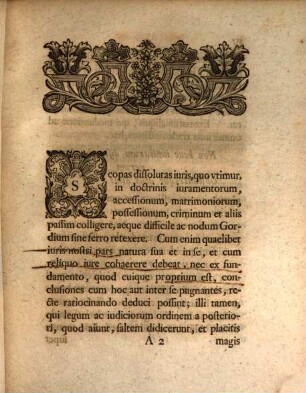 Scopas dissolutas iuris, quo vtimur,
in doctrinis iuramentorum,
accessionum, matrimoniorum,
possessionum, criminum et aliis
passim colligere, aeque difficile ac nodum Gor-
dium sine ferro retexere. Cum enim quaelibet
iuris nostri pars natura sua et in se, et cum
reliquo iure cohaerere debeat, nec ex fun-
damento, quod cuique proprium est, con-
clusiones cum hoc aut inter se pugnantes, re-
cte ratiocinando deduci possint; illi tamen,
qui legum ac iudiciorum ordinem a posterio-
ri, quod aiunt, saltem didicerunt, et placitis
A 2 magis